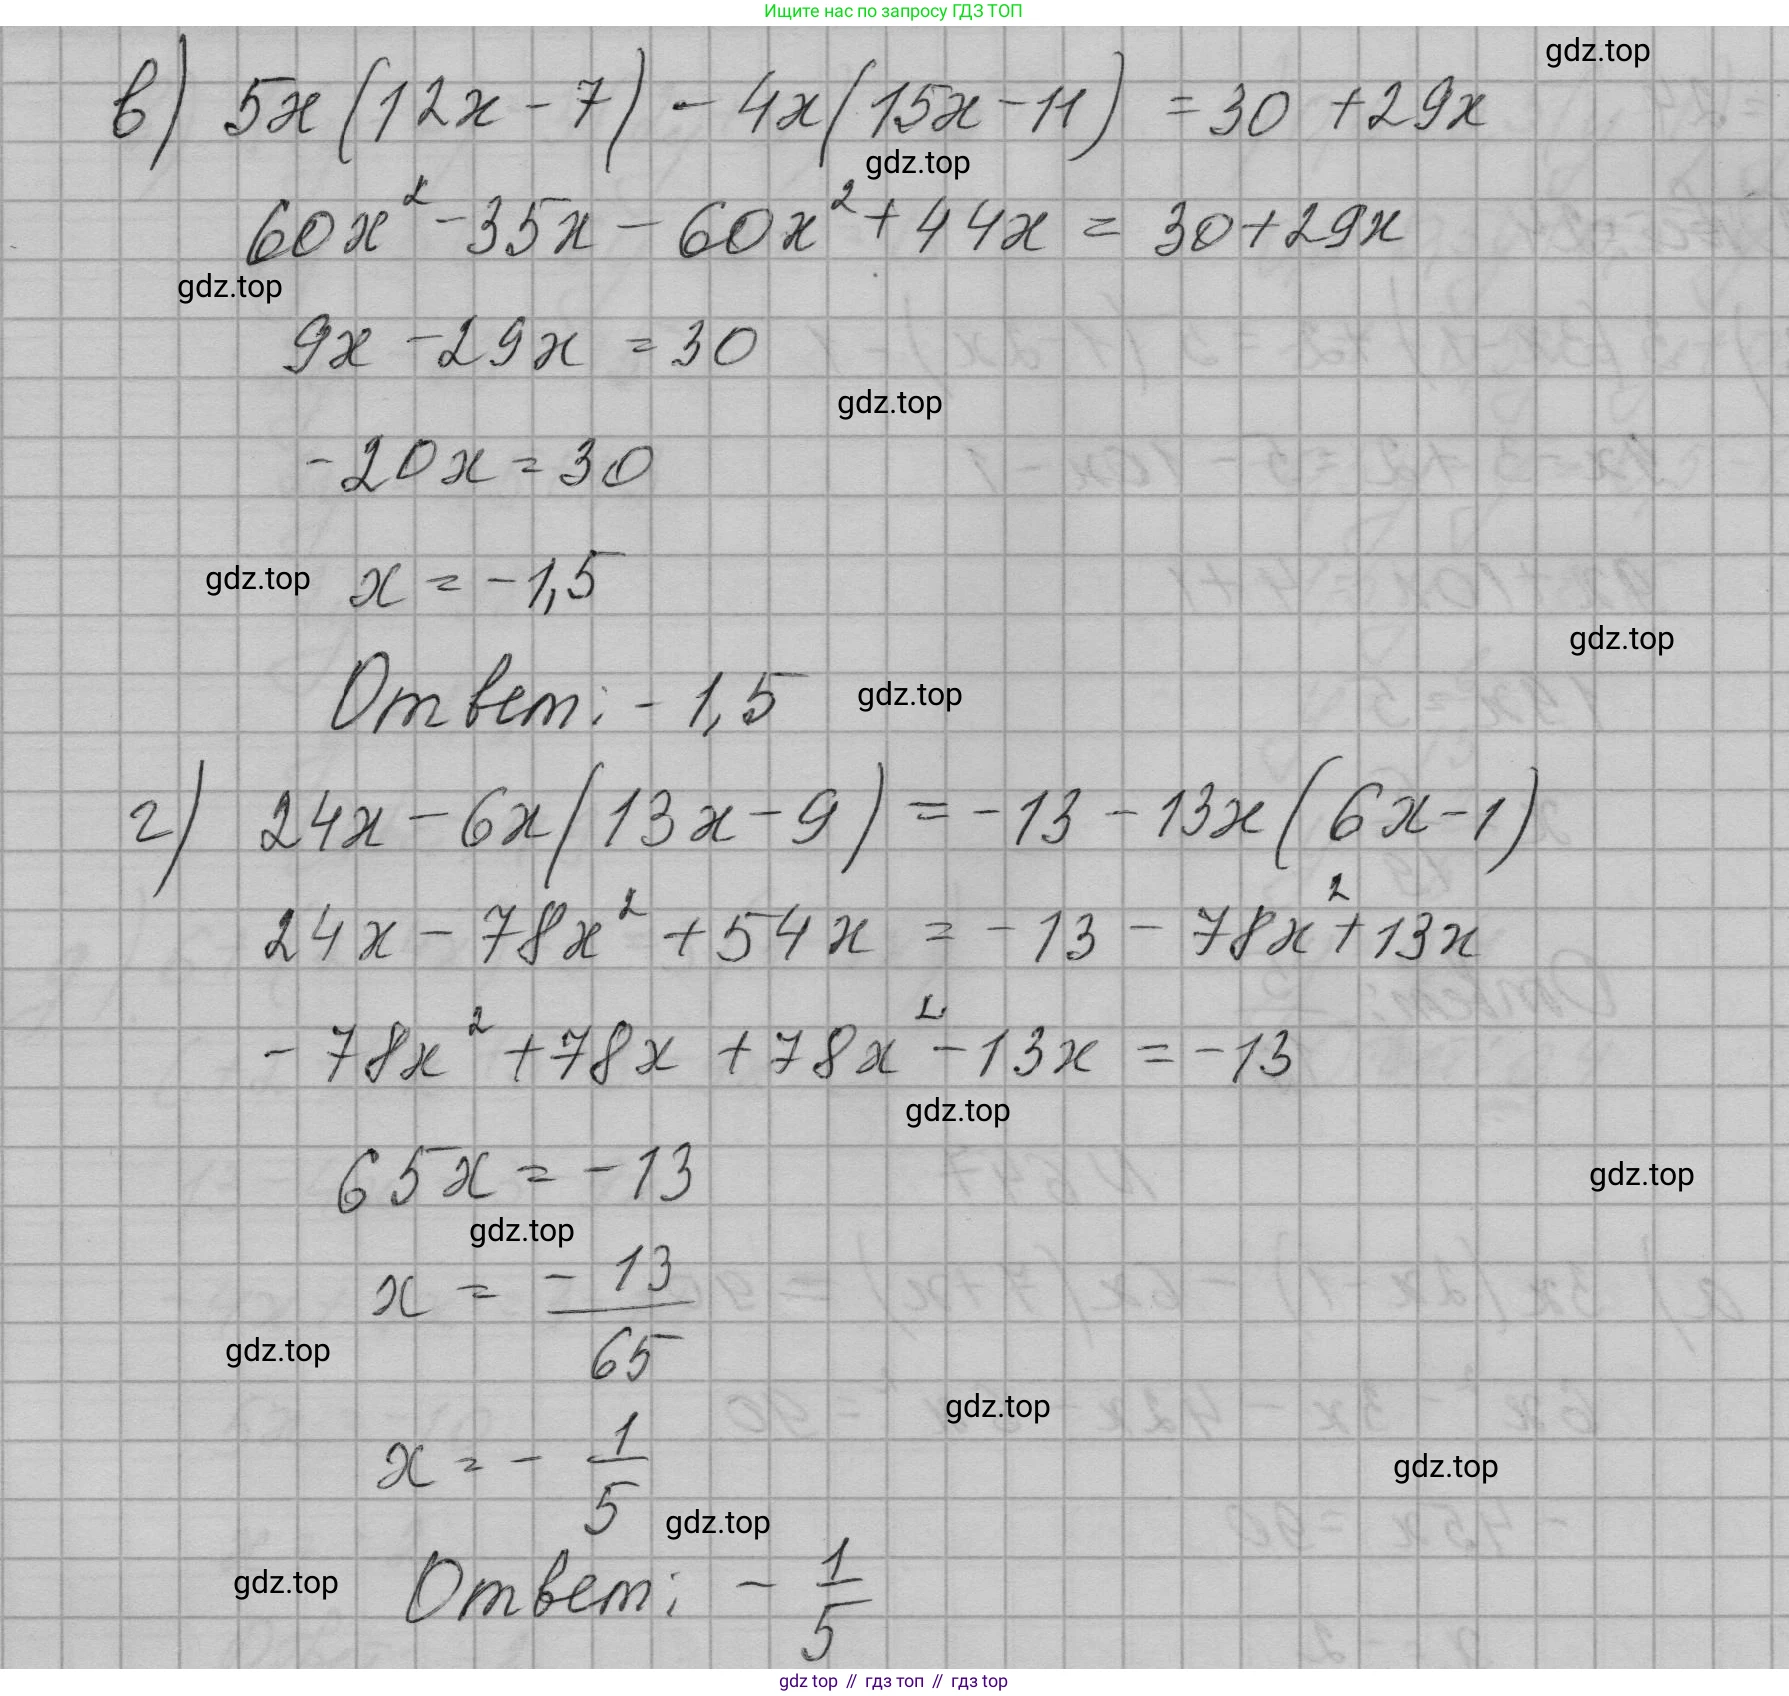 Ищите нас по запросу ГДЗ ТОП
gdz.top
в) 5x(12x - 7) - 4x(15x - 11) = 30 + 29x
gdz.top
60x² - 35x - 60x² + 44x = 30 + 29x
gdz.top
9x - 29x = 30
gdz.top
-20x = 30
gdz.top x = -1,5
gdz.top
Ответ: -1,5 gdz.top
г) 24x - 6x(13x - 9) = -13 - 13x(6x - 1)
24x - 78x² + 54x = -13 - 78x² + 13x
-78x² + 78x + 78x² - 13x = -13
gdz.top
65x = -13
gdz.top
gdz.top
x = -13/65
gdz.top
gdz.top
x = - 1/5
gdz.top
gdz.top
gdz.top Ответ: - 1/5
gdz top // гдз топ // gdz top